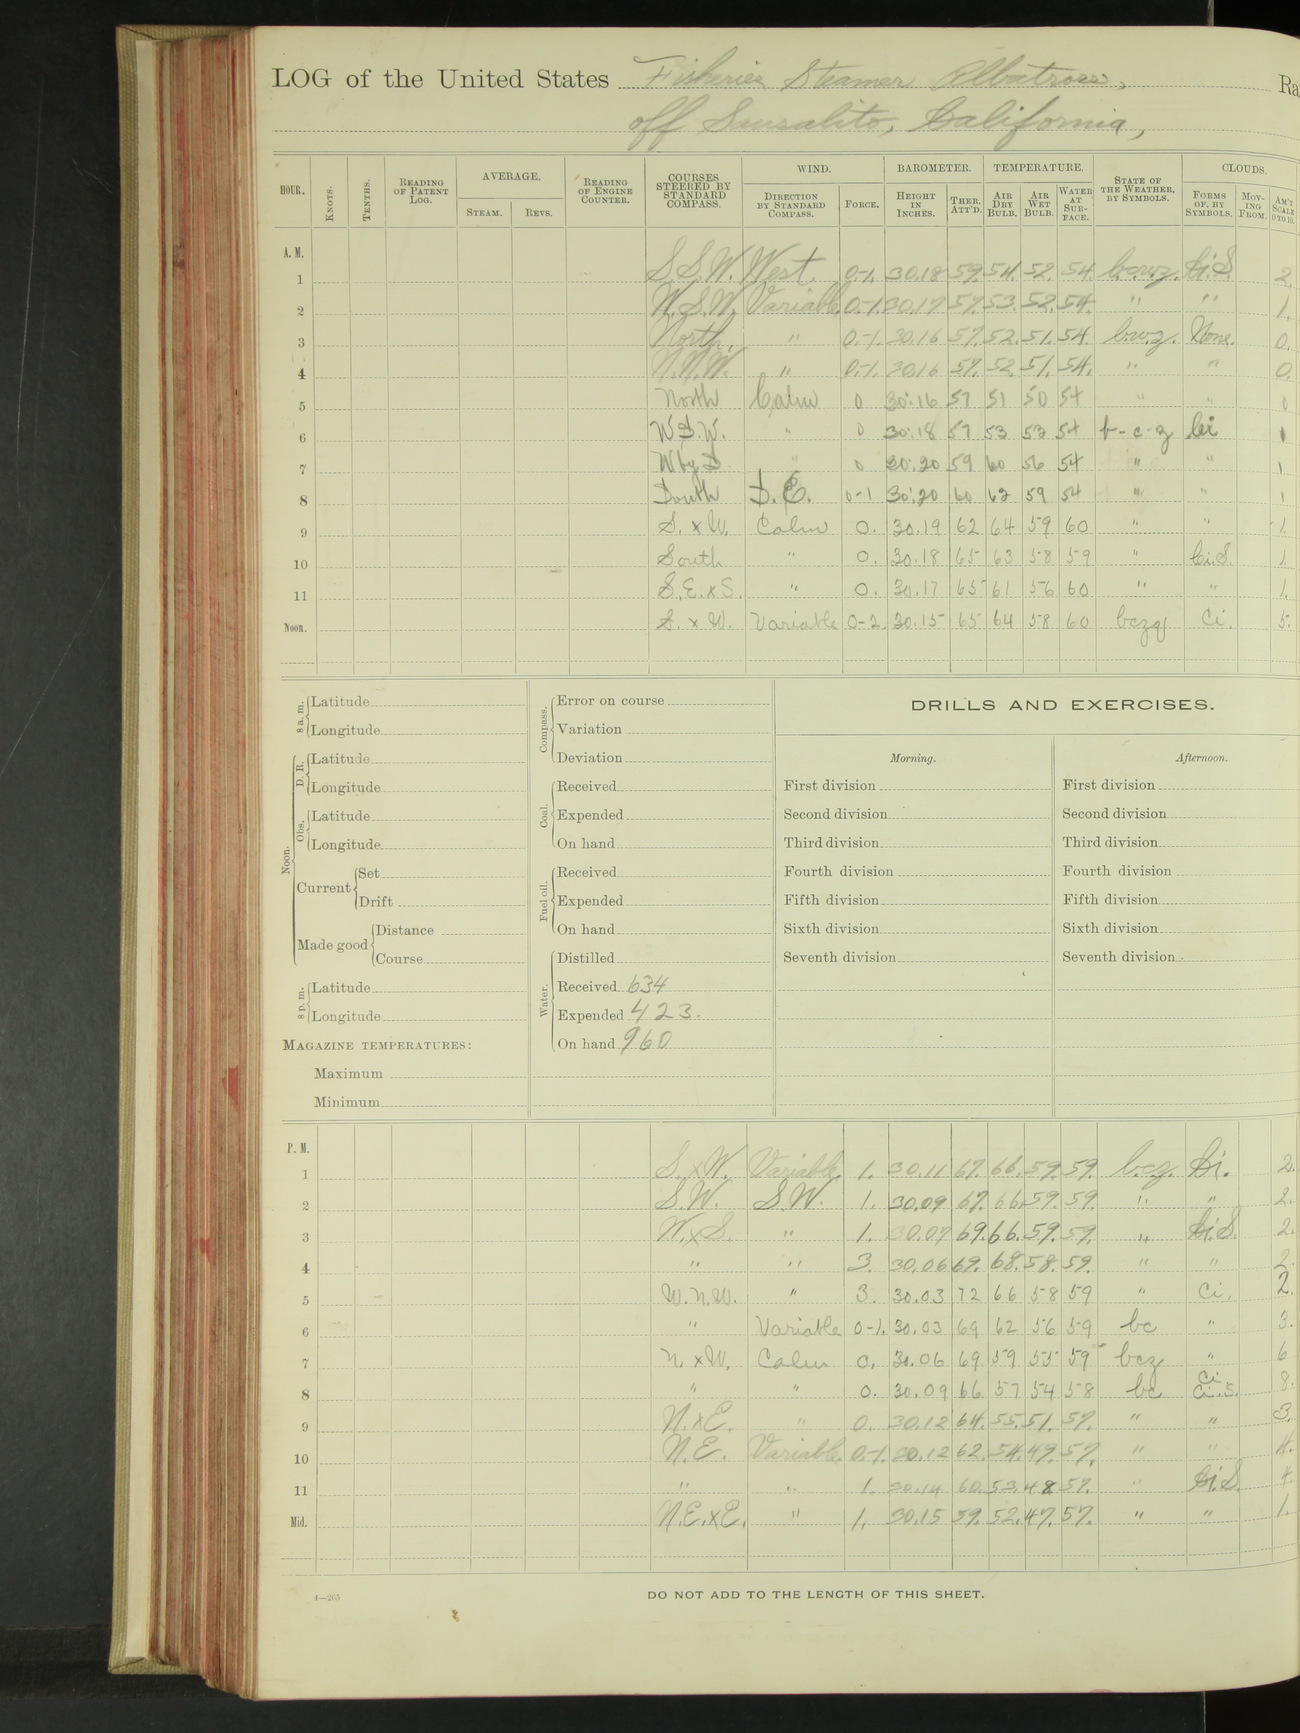 LOG of the United States Fisheries Steamer Albatross, Ra
off Sausalito, California,
HOUR. KNOTS. TENTHS. READING OF PATENT LOG. AVERAGE. STEAM. REVS. READING OF ENGINE COUNTER. COURSES STEERED BY STANDARD COMPASS. WIND. DIRECTION BY STANDARD COMPASS. FORCE. BAROMETER. HEIGHT IN INCHES. THER. ATT'D. TEMPERATURE. AIR DRY BULB. AIR WET BULB. WATER AT SURFACE. STATE OF THE WEATHER, BY SYMBOLS. CLOUDS. FORMS OF, BY SYMBOLS. MOVING FROM. AM'T SCALE 0 TO 10.
A. M.
1 S.S.W. West. 0-1. 30.18 59. 54. 52. 54. b.c.w.z. Ci.S. 2.
2 W.S.W. Variable 0-1. 30.17 57. 53. 52. 54. " " 1.
3 North. " 0-1. 30.16 57. 52. 51. 54. b.w.z. None. 0.
4 N.N.W. " 0-1. 30.16 57. 52. 51. 54. " " 0.
5 North Calm 0 30.16 57 51 50 54 " " 0
6 WSW. " 0 30.18 57 53 53 54 b-c-z Ci 1
7 W by S " 0 30.20 59 60 56 54 " " 1
8 South S.E. 0-1 30.20 60 62 59 54 " " 1
9 S. x W. Calm 0. 30.19 62 64 59 60 " " 1.
10 South " 0. 30.18 65 63 58 59 " Ci.S. 1.
11 S.E. x S. " 0. 30.17 65 61 56 60 " " 1.
Noon. S. x W. Variable 0-2. 30.15 65 64 58 60 bczq Ci. 5.
8 a. m. Latitude
Longitude
Noon. D. R. Latitude
Longitude
Obs. Latitude
Longitude
Current Set
Drift
Made good Distance
Course
8 p. m. Latitude
Longitude
MAGAZINE TEMPERATURES:
Maximum
Minimum
Compass. Error on course
Variation
Deviation
Coal. Received
Expended
On hand
Fuel oil. Received
Expended
On hand
Water. Distilled
Received 634
Expended 423.
On hand 960
DRILLS AND EXERCISES.
Morning. Afternoon.
First division First division
Second division Second division
Third division Third division
Fourth division Fourth division
Fifth division Fifth division
Sixth division Sixth division
Seventh division Seventh division
P. M.
1 S. x W. Variable 1. 30.11 67. 66. 59. 59. b.c.z. Ci. 2.
2 S.W. S.W. 1. 30.09 67. 66. 59. 59. " " 2.
3 W. x S. " 1. 30.07 69. 66. 59. 59. " Ci.S. 2.
4 " " 3. 30.06 69. 68. 58. 59. " " 2.
5 W.N.W. " 3. 30.03 72 66 58 59 " Ci. 2.
6 " Variable 0-1. 30.03 69 62 56 59 bc " 3.
7 N. x W. Calm 0. 30.06 69 59 55 59 bcz " 6
8 " " 0. 30.09 66 57 54 58 bc Ci Ci.S. 8.
9 N. x E. " 0. 30.12 64. 55. 51. 57. " " 3.
10 N.E. Variable 0-1. 30.12 62. 54. 49. 57. " " 4.
11 " " 1. 30.14 60. 53. 48 57. " Ci.S. 4.
Mid. N.E. x E. " 1. 30.15 59. 52. 47. 57. " " 1.
4—265
DO NOT ADD TO THE LENGTH OF THIS SHEET.